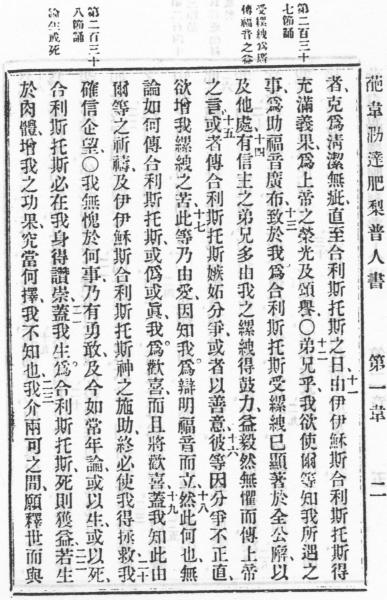 葩韋勒達肥梨普人書 第一章 二
第二百三十
七節誦
受縲絏爲播
傳福音之益
第二百三十
八節誦
論生或死
者、克爲清潔無疵直至合利斯托斯之日、十一由伊伊穌斯合利斯托斯得
充滿義果、爲上帝之榮光及頌譽〇十二弟兄乎、我欲使爾等知我所遇之
事、爲助福音廣布、十三致於我爲合利斯托斯受縲絏已顯著於全公廨以
及他處、十四有信主之弟兄多由我之縲絏得鼓力益毅然無懼而傳上帝
之言、十五或者傳合利斯托斯嫉妬分爭或者以善意、十六彼等因分爭不正直、
欲增我縲絏之苦、十七此等乃由愛、因知我爲辯明福音而立、十八然此何也無
論如何傳合利斯托斯、或僞或真、我爲歡喜而且將歡喜、十九蓋我知此由
爾等之祈禱及伊伊穌斯合利斯托斯神之施助、終必使我得拯救、二十我
確信企望〇我無愧於何事乃有勇敢、及今如常年論或以生或以死、
合利斯托斯必在我身得讚崇、二一蓋我生爲合利斯托斯、死則獲益、二二若生
於肉體、增我之功果、究當何擇我不知也、二三我介兩可之間、願釋世而與